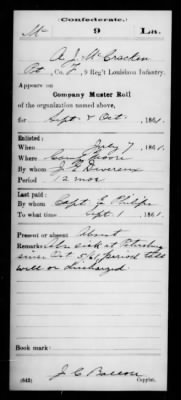 Confederate.
Mc 9 La.
A. J. McCracken
Pvt, Co. F, 9 Reg't Louisiana Infantry.
Appears on
Company Muster Roll
of the organization named above,
for Sept & Oct, 1861.
Enlisted:
When July 7, 1861.
Where Camp Moore
By whom
Period 12 mos
Last paid:
By whom Capt. J. Philips
To what time Sept 1, 1861.
Present or absent Absent
Remarks: Abs sick at
since Oct 5/61 period till
well or Discharged
Book mark:
(642)
Copyist.